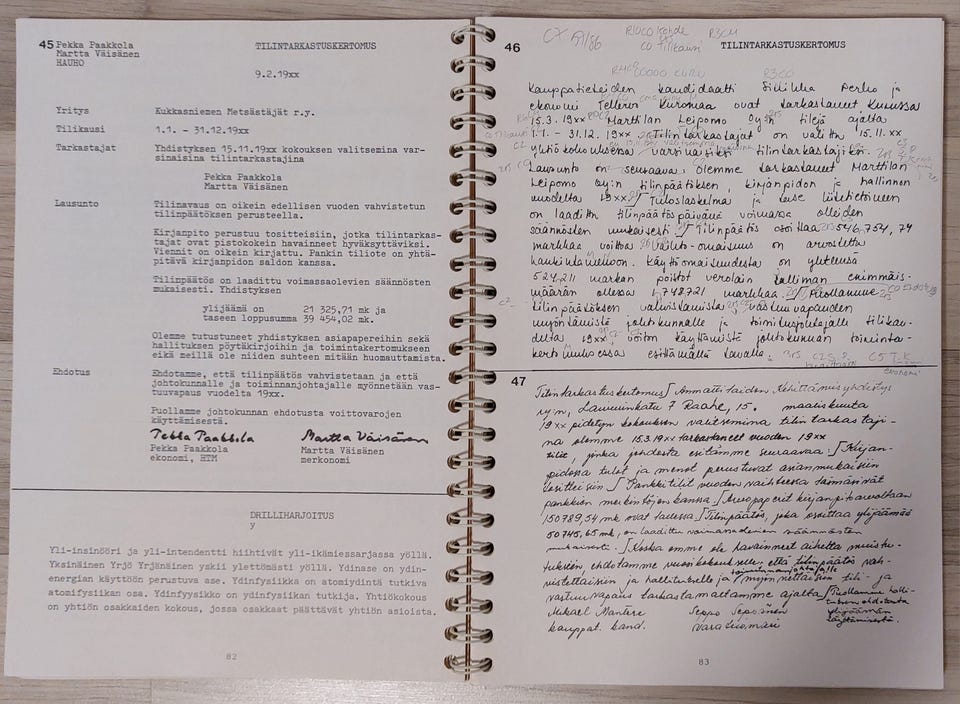 45 Pekka Paakkola
Martta Väisänen
HAUHO
TILINTARKASTUSKERTOMUS
9.2.19xx
Yritys Kukkasniemen Metsästäjät r.y.
Tilikausi 1.1. - 31.12.19xx
Tarkastajat Yhdistyksen 15.11.19xx kokouksen valitsemina var-
sinaisina tilintarkastajina
Pekka Paakkola
Martta Väisänen
Lausunto Tilinavaus on oikein edellisen vuoden vahvistetun
tilinpäätöksen perusteella.
Kirjanpito perustuu tositteisiin, jotka tilintarkas-
tajat ovat pistokokein havainneet hyväksyttäviksi.
Viennit on oikein kirjattu. Pankin tiliote on yhtä-
pitävä kirjanpidon saldon kanssa.
Tilinpäätös on laadittu voimassaolevien säännösten
mukaisesti. Yhdistyksen
ylijäämä on 21 325,71 mk ja
taseen loppusumma 39 454,02 mk.
Olemme tutustuneet yhdistyksen asiapapereihin sekä
hallituksen pöytäkirjoihin ja toimintakertomukseen
eikä meillä ole niiden suhteen mitään huomauttamista.
Ehdotus Ehdotamme, että tilinpäätös vahvistetaan ja että
johtokunnalle ja toiminnanjohtajalle myönnetään vas-
tuuvapaus vuodelta 19xx.
Puollamme johtokunnan ehdotusta voittovarojen
käyttämisestä.
Pekka Paakkola Martta Väisänen
Pekka Paakkola Martta Väisänen
ekonomi, HTM merkonomi
DRILLIHARJOITUS
y
Yli-insinööri ja yli-intendentti hiihtivät yli-ikämiessarjassa yöllä.
Yksinäinen Yrjö Yrjänäinen yskii ylettömästi yöllä. Ydinase on ydin-
energian käyttöön perustuva ase. Ydinfysiikka on atomiydintä tutkiva
atomifysiikan osa. Ydinfyysikko on ydinfysiikan tutkija. Yhtiökokous
on yhtiön osakkaiden kokous, jossa osakkaat päättävät yhtiön asioista.
82
46 TILINTARKASTUSKERTOMUS
Kauppatieteiden kandidaatti Sirkka Perho ja
ekonomi Tellervo Kuromaa ovat tarkastaneet Kurussa
15.3.19xx Marttilan Leipomo Oy:n tilejä ajalta
1.1. - 31.12.19xx Tilintarkastajat on valittu 15.11.xx
yhtiökokouksessa varsinaisiksi tilintarkastajiksi.
Lausunto on seuraava: Olemme tarkastaneet Marttilan
Leipomo Oy:n tilinpäätöksen, kirjanpidon ja hallinnon
vuodelta 19xx. Tuloslaskelma ja tase liitetietoineen
on laadittu tilinpäätöspäivänä voimassa olleiden
säännösten mukaisesti. Tilinpäätös osoittaa 546.754,74
markkaa voittoa. Vaihto-omaisuus on arvostettu
hankintahintaan. Käyttöomaisuudesta on yhteensä
524.211 markan poistot verolain salliman enimmäis-
määrän ollessa 1.748.721 markkaa. Puollamme
tilinpäätöksen vahvistamista, vastuuvapauden
myöntämistä johtokunnalle ja toimitusjohtajalle tilikau-
delta 19xx, voiton käyttämistä johtokunnan toiminta-
kertomuksessa esittämällä tavalla.
47
Tilintarkastuskertomus Ammattitaidon Kehittämisyhdistys
ry:n, Laivurinkatu 7 Raahe, 15. maaliskuuta
19xx pidetyn kokouksen valitsemina tilintarkastaji-
na olemme 15.3.19xx tarkastaneet vuoden 19xx
tilit, jonka johdosta esitämme seuraavaa: Kirjan-
pidossa tulot ja menot perustuvat asianmukaisiin
tositteisiin. Pankkitilit vuoden vaihteessa täsmäsivät
pankkien merkintöjen kanssa. Arvopaperit kirjanpitoarvoltaan
150789,54 mk ovat tallessa. Tilinpäätös, joka osoittaa ylijäämää
50745,65 mk, on laadittu voimassaolevien säännösten
mukaisesti. Koska emme ole havainneet aihetta muistu-
tuksiin, ehdotamme vuosikokoukselle, että tilinpäätös vah-
vistettaisiin ja hallitukselle ja toiminnanjohtajalle myönnettäisiin tili- ja
vastuuvapaus tarkastamaltamme ajalta. Puollamme halli-
tuksen ehdotusta
ylijäämän
käyttämisestä.
Mikael Mantere Seppo Seponen
kauppat. kand. varatuomari
83